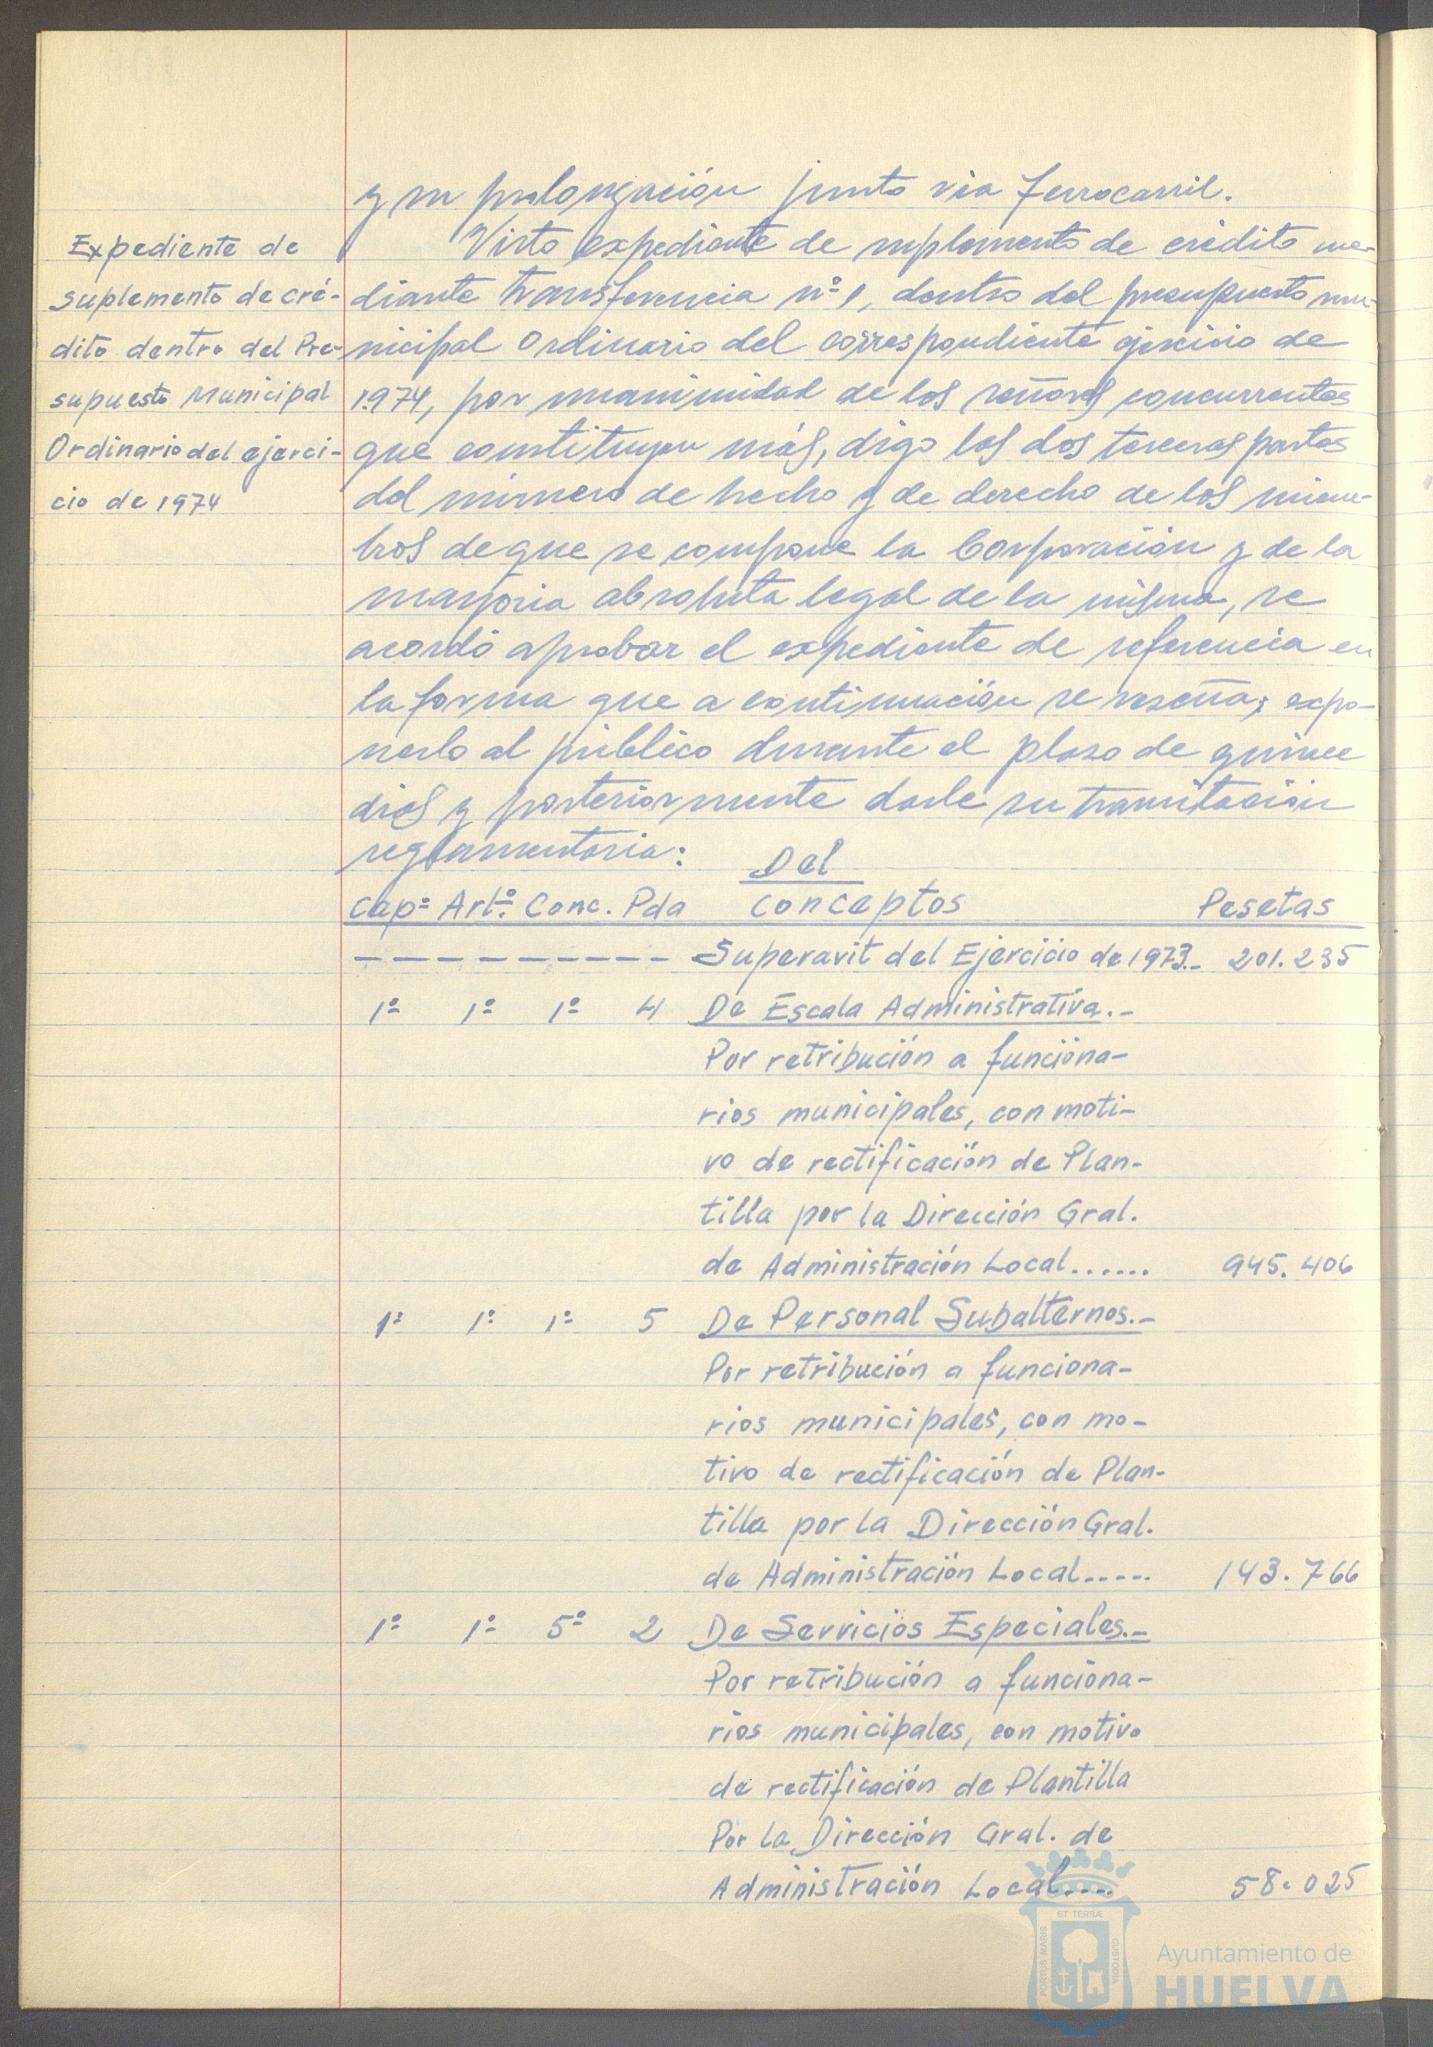 y su prolongación junto via ferrocarril.
Expediente de
suplemento de cré-
dito dentro del Pre-
supuesto Municipal
Ordinario del ejerci-
cio de 1974
Visto expediente de suplemento de crédito me-
diante transferencia nº 1, dentro del presupuesto mu-
nicipal Ordinario del correspondiente ejercicio de
1.974, por unanimidad de los señores concurrentes
que constituyen más, digo las dos terceras partes
del número de hecho y de derecho de los miem-
bros de que se compone la Corporación y de la
mayoria absoluta legal de la misma, se
acordó aprobar el expediente de referencia en
la forma que a continuación se reseña; expo-
nerlo al público durante el plazo de quince
dias y posteriormente darle su tramitación
reglamentaria:
Del
Capº Artº. Conc. Pda Conceptos Pesetas
— — — — — — — — — — Superavit del Ejercicio de 1973.- 201.235
1º 1º 1º 4 De Escala Administrativa.-
Por retribución a funciona-
rios municipales, con moti-
vo de rectificación de Plan-
tilla por la Dirección Gral.
de Administración Local...... 945.406
1º 1º 1º 5 De Personal Subalternos.-
Por retribución a funciona-
rios municipales, con mo-
tivo de rectificación de Plan-
tilla por la Dirección Gral.
de Administración Local..... 143.766
1º 1º 5º 2 De Servicios Especiales.-
Por retribución a funciona-
rios municipales, con motivo
de rectificación de Plantilla
Por la Dirección Gral. de
Administración Local.... 58.025
PORTUS MARIS ET TERRÆ CUSTODIA
Ayuntamiento de
HUELVA